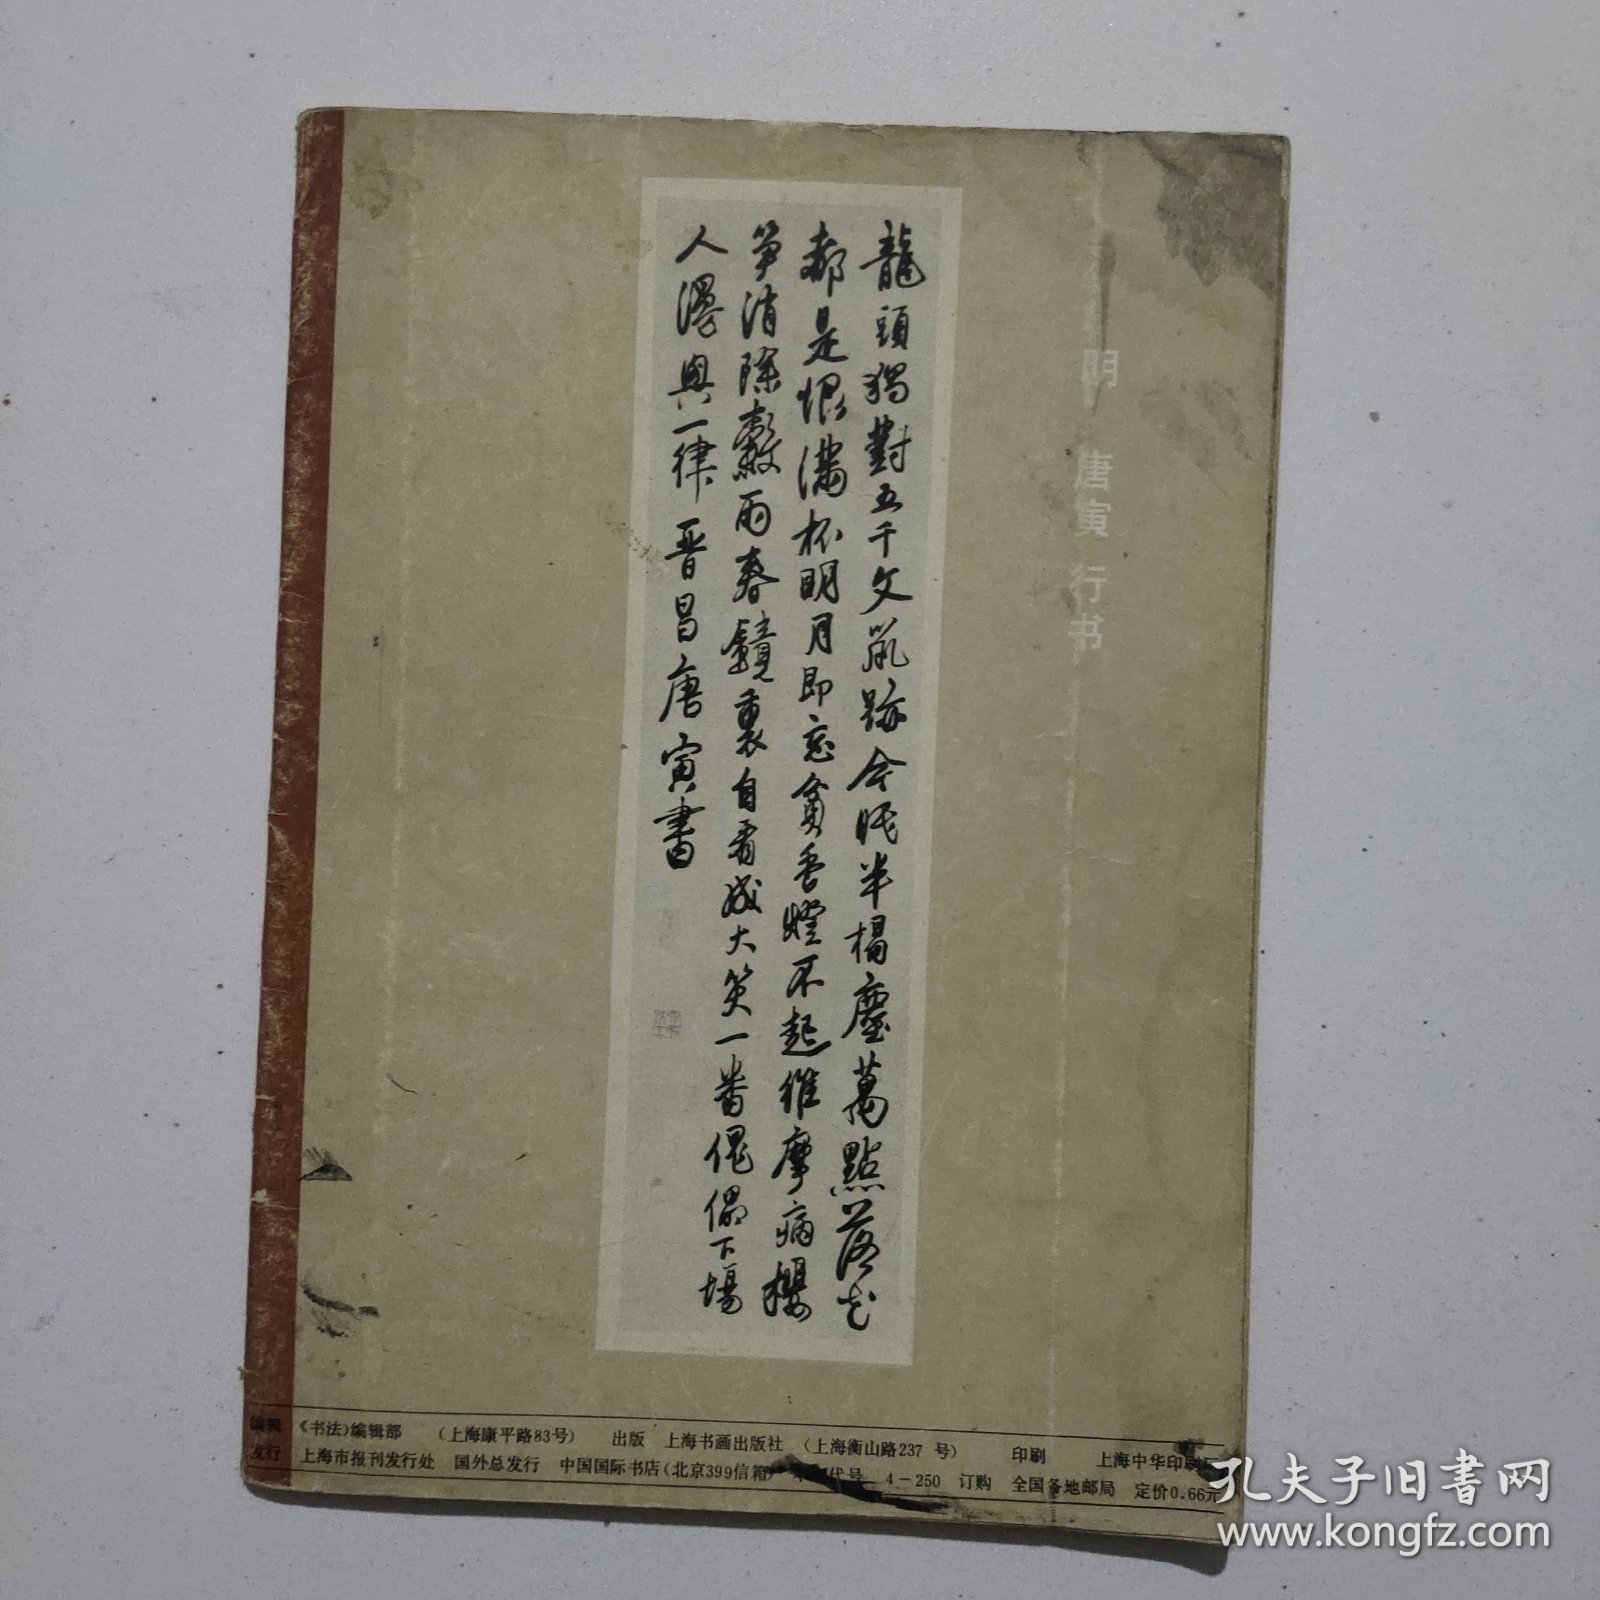 龍頭獨對五千文鼠跡今眠半榻塵萬點落花
都是恨滿杯明月即忘貧香燈不起維摩病櫻
笋消除穀雨春鏡裏自看成大笑一番傀儡下場
人漫興一律晋昌唐寅書
明 唐寅 行书
编辑 《书法》编辑部 (上海康平路83号) 出版 上海书画出版社 (上海衡山路237号) 印刷 上海中华印刷厂
发行 上海市报刊发行处 国外总发行 中国国际书店(北京399信箱) 代号 4-250 订购 全国各地邮局 定价0.66元
孔夫子旧书网
www.kongfz.com